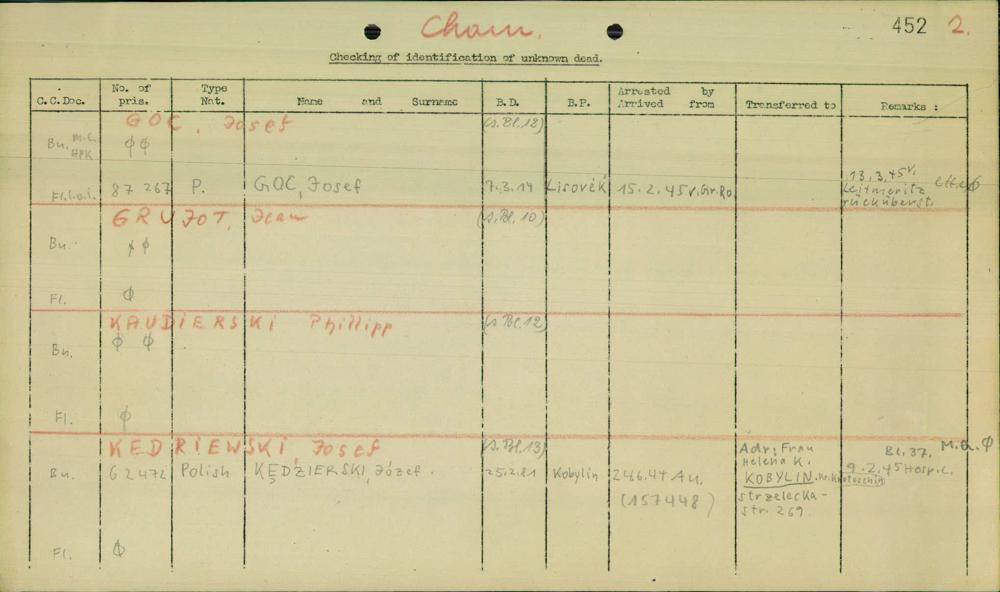 Cham.
452 2.
Checking of identification of unknown dead.
C.C.Doc. No. of pris. Type Nat. Name and Surname B.D. B.P. Arrested by Arrived from Transferred to Remarks :
GOC, Josef (s.Bl.12)
Bu. M.C. HPK ϕ ϕ
Fl. 87 267 P. GOC, Josef 7.3.14 Lisovék 15.2.45 v. Gr.Ro. 13.3.45 v. Leitmeritz rücküberst.
GRUJOT, Jean (s.Bl.10)
Bu. ϕ ϕ
Fl. ϕ
KAUDIERSKI Phillipp (s.Bl.12)
Bu. ϕ ϕ
Fl. ϕ
KEDRIEWSKI, Josef (s.Bl.13)
Bu. 62472 Polish KĘDZIERSKI, Józef. Kobylin Au. (157448)
Adr: Frau Helena K. KOBYLIN strzelecka-str. 269
Bl. 37. 9.2.45 Hosp.
Fl. ϕ